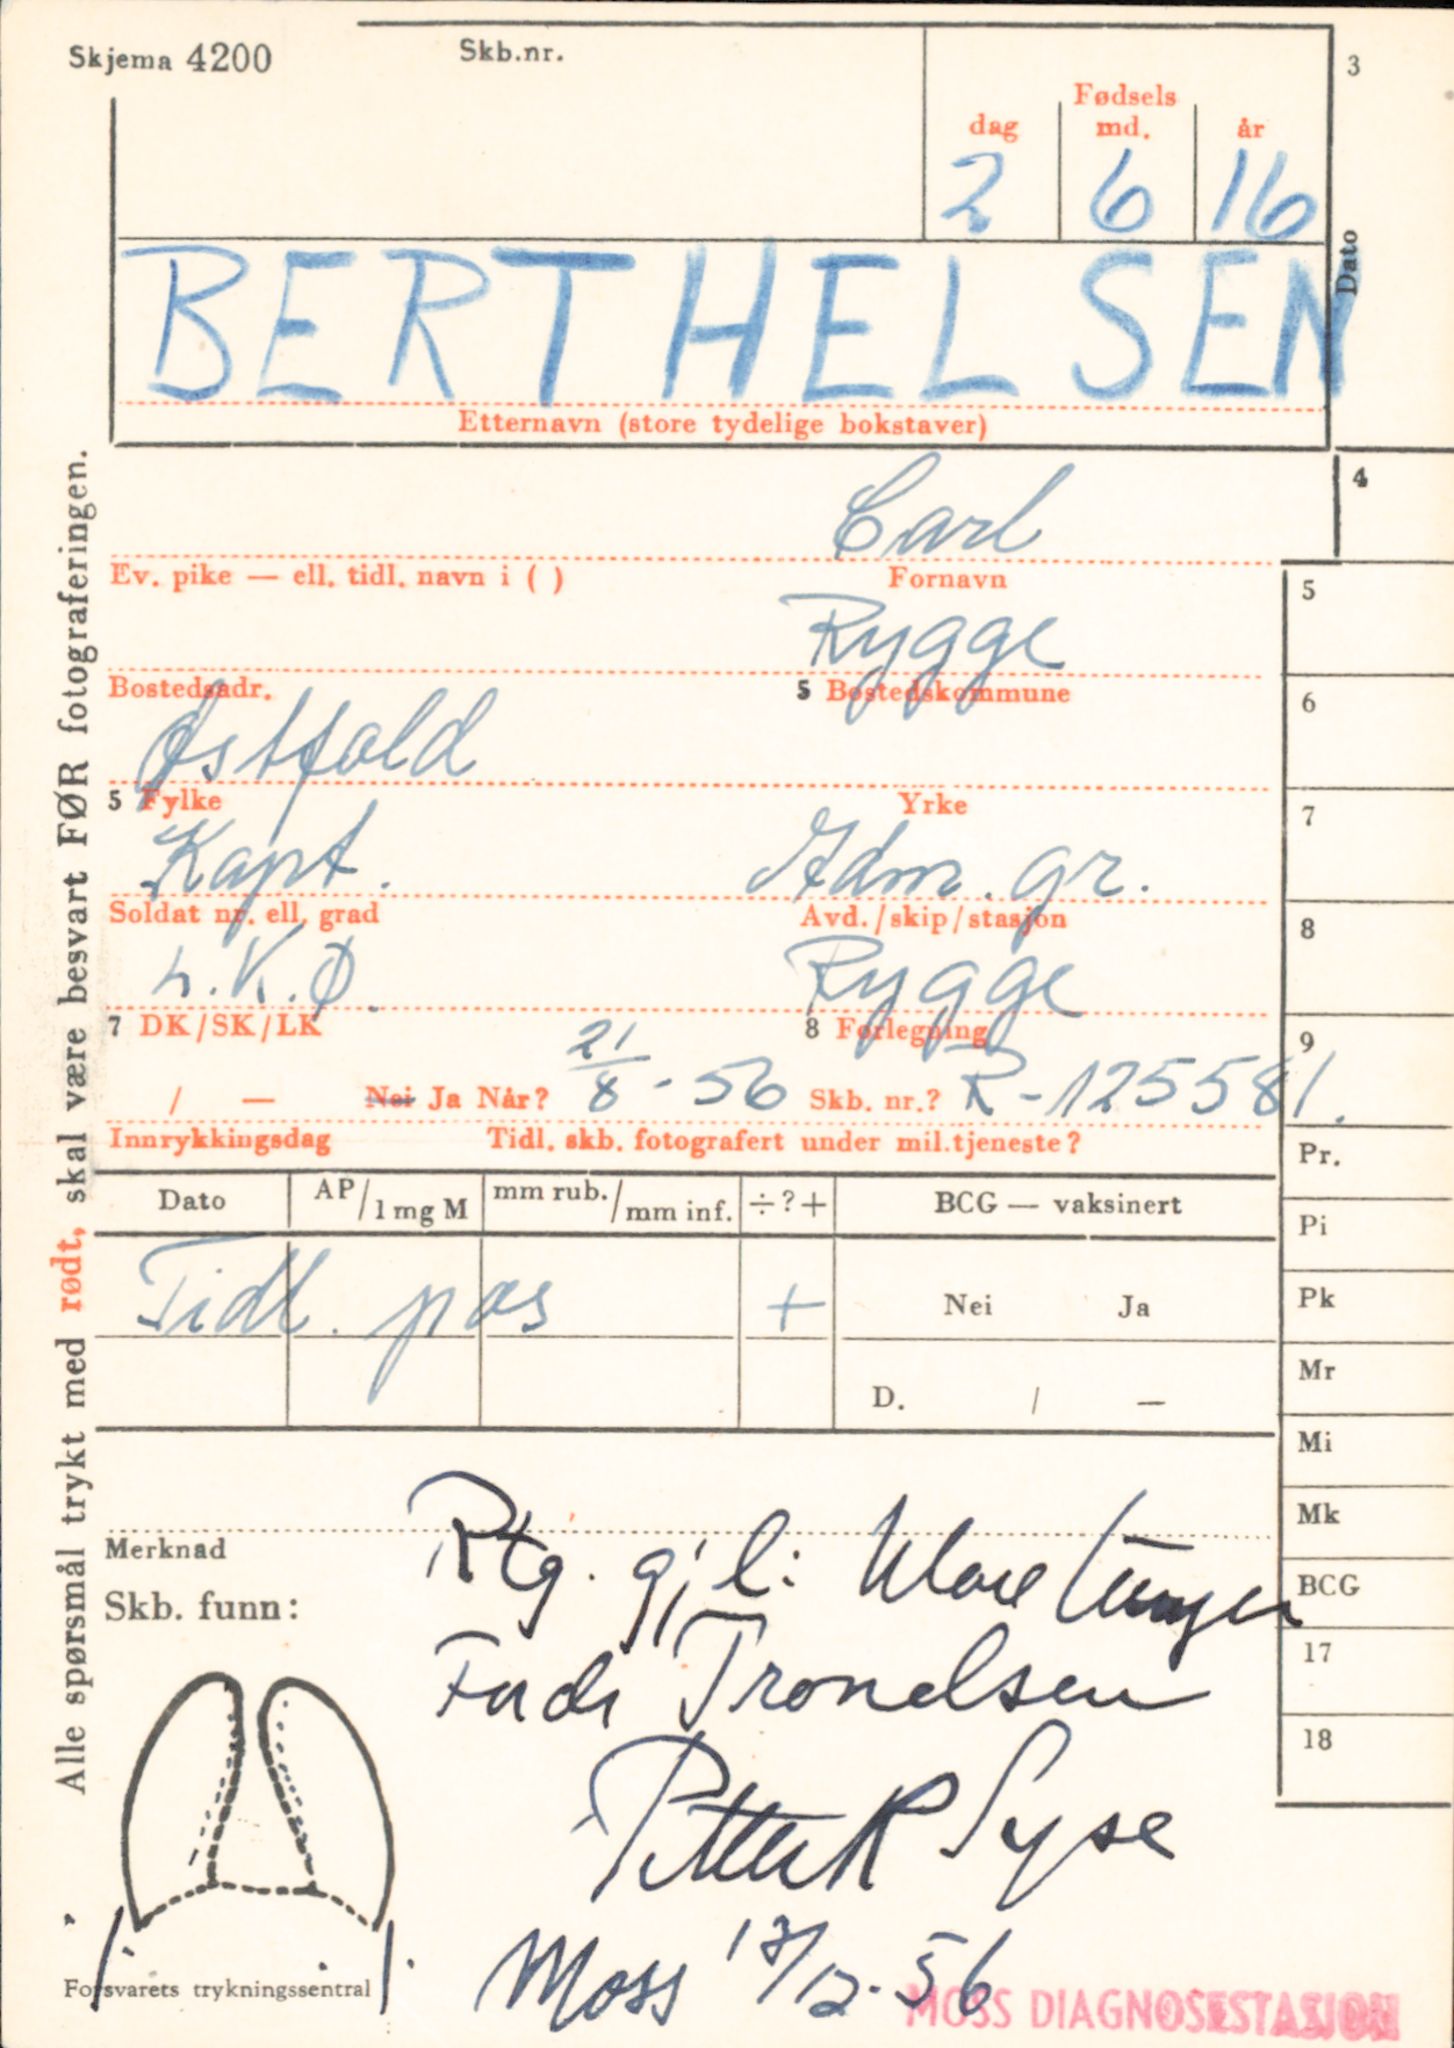 Skjema 4200
Skb.nr.
3
Fødsels
dag md. år
2 6 16
Dato
BERTHELSEN
Etternavn (store tydelige bokstaver)
4
Carl
Ev. pike — ell. tidl. navn i ( ) Fornavn
5
Rygge
Bostedsadr. 5 Bostedskommune
6
Østfold
5 Fylke Yrke
7
Kapt. Adm. gr.
Soldat nr. ell. grad Avd./skip/stasjon
8
L.K.Ø. Rygge
7 DK/SK/LK 8 Forlegning
9
/ — Nei Ja Når? 21/8-56 Skb. nr.? R-125581.
Innrykkingsdag Tidl. skb. fotografert under mil.tjeneste?
Pr.
Dato AP/1 mg M mm rub./mm inf. ÷?+ BCG — vaksinert
Pi
Tidl. pos + Nei Ja
Pk
Mr
D. / —
Mi
Mk
Merknad
Rtg. gj l: Klare lunger
BCG
Skb. funn:
17
Trondsen
18
Petter K Syse
Moss 17/12-56
Forsvarets trykningssentral
MOSS DIAGNOSESTASJON
Alle spørsmål trykt med rødt, skal være besvart FØR fotograferingen.